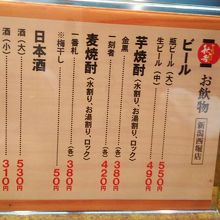 お飲物
新潟西堀店
ビール
瓶ビール(大) 550
生ビール(中) 490円
芋焼酎(水割り、お湯割り、ロック)
金黒(各) 480円
一刻者(各) 420円
麦焼酎(水割り、お湯割り、ロック)
一番札(各) 380円
※梅干し 50円
日本酒
酒(大) 530円
酒(小) 310円